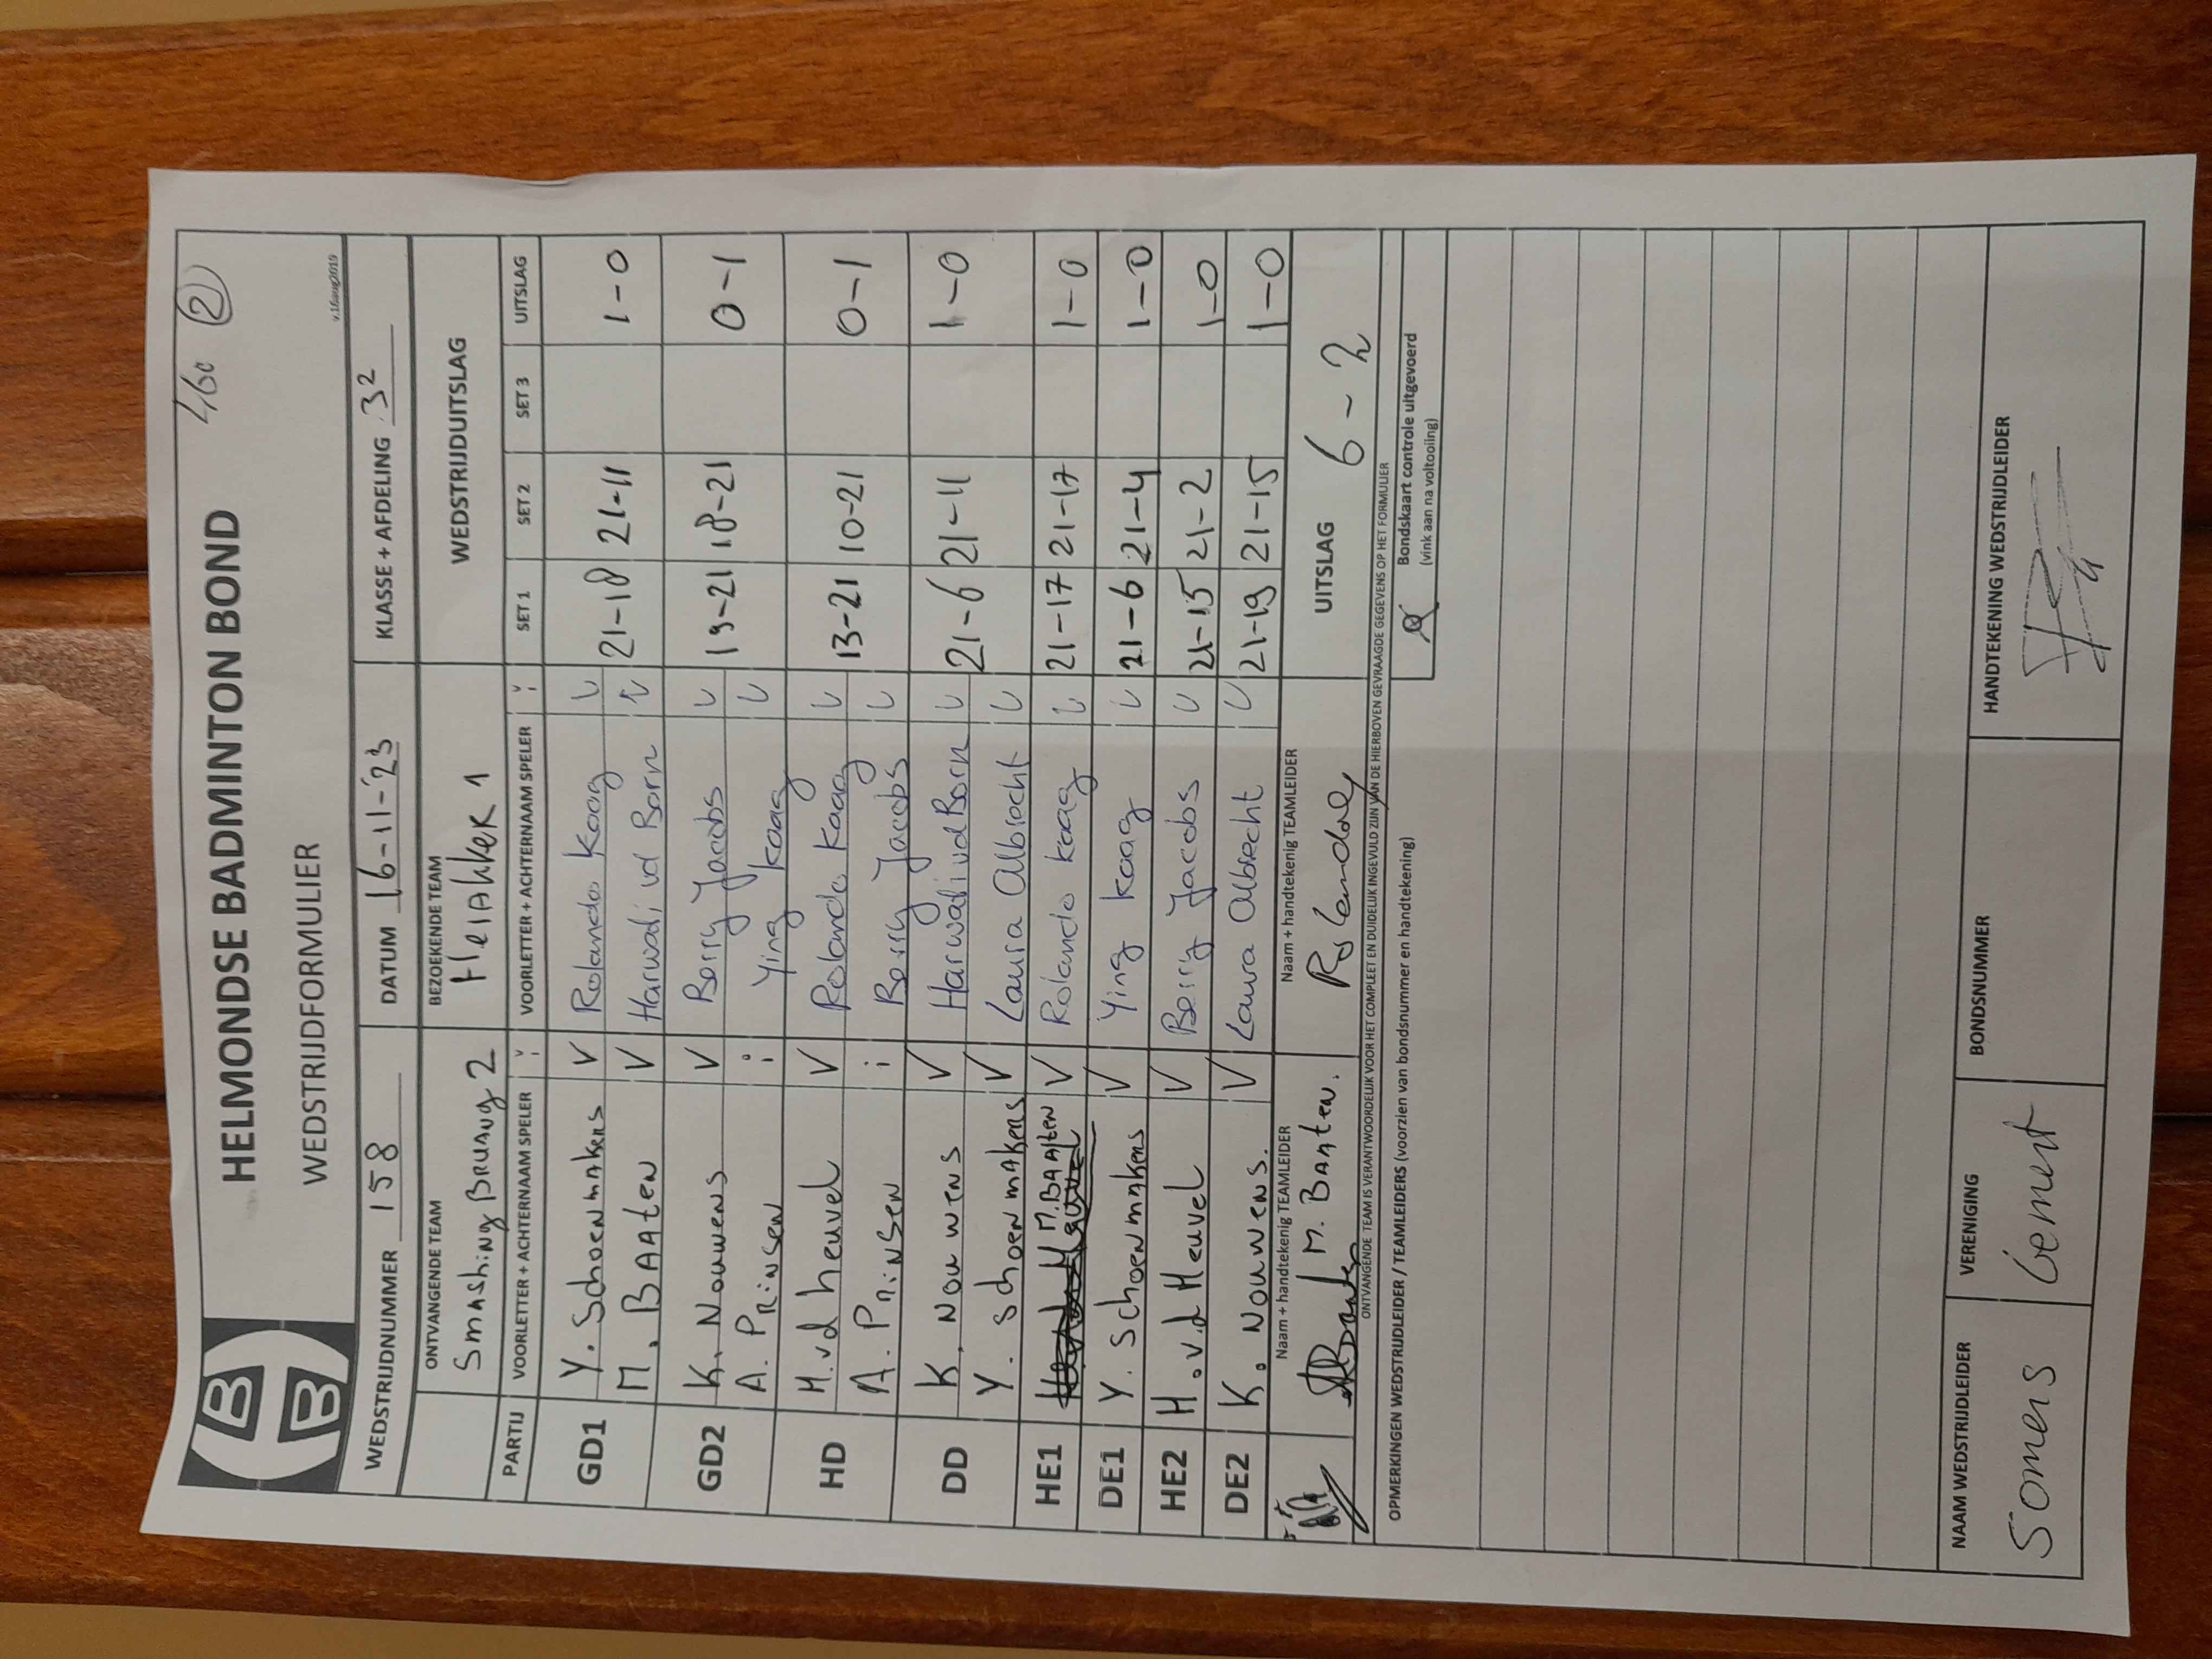 HB
B
HELMONDSE BADMINTON BOND
460 2
WEDSTRIJDFORMULIER
v.16aug2019
WEDSTRIJDNUMMER 158 DATUM 16-11-'23 KLASSE + AFDELING 3²
ONTVANGENDE TEAM BEZOEKENDE TEAM WEDSTRIJDUITSLAG
Smashing Bruaug 2 MeiAkker 1
PARTIJ VOORLETTER + ACHTERNAAM SPELER VOORLETTER + ACHTERNAAM SPELER SET 1 SET 2 SET 3 UITSLAG
GD1 Y. Schoenmakers V Rolando Kaag V 21-18 21-11 1-0
M. BAAten V Harwadi vd Born V
GD2 K. Nouwens V Berry Jacobs V 19-21 18-21 0-1
A. Prinsen Ying Kaag V
HD H.vd heuvel V Rolando Kaag V 13-21 10-21 0-1
A. Prinsen Berry Jacobs V
DD K. Nouwens V Harwadi vd Born V 21-6 21-11 1-0
Y. Schoenmakers V Laura Albrecht V
HE1 M. BAAten V Rolando Kaag V 21-17 21-17 1-0
DE1 Y. Schoenmakers V Ying Kaag V 21-6 21-4 1-0
HE2 H.v.d Heuvel V Berry Jacobs V 21-15 21-2 1-0
DE2 K. Nouwens. V Laura Albrecht V 21-19 21-15 1-0
Naam + handtekenig TEAMLEIDER Naam + handtekenig TEAMLEIDER UITSLAG 6-2
M. BAAten. Rolando
ONTVANGENDE TEAM IS VERANTWOORDELIJK VOOR HET COMPLEET EN DUIDELIJK INGEVULD ZIJN VAN DE HIERBOVEN GEVRAAGDE GEGEVENS OP HET FORMULIER
OPMERKINGEN WEDSTRIJDLEIDER / TEAMLEIDERS (voorzien van bondsnummer en handtekening)
Bondskaart controle uitgevoerd
(vink aan na voltooiing)
NAAM WEDSTRIJDLEIDER VERENIGING BONDSNUMMER HANDTEKENING WEDSTRIJDLEIDER
Somers Gemert